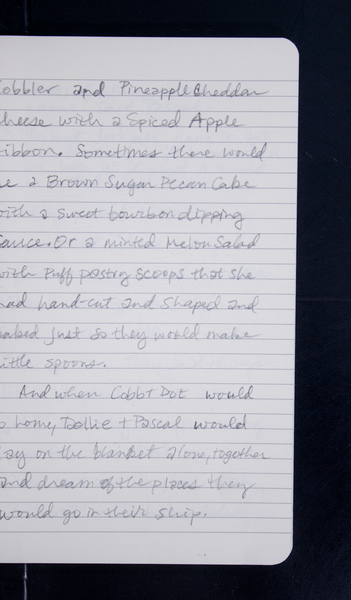 obbler and Pineapple Cheddar
heese with a Spiced Apple
ibbon. Sometimes there would
e a Brown Sugar Pecan Cake
ith a sweet bourbon dipping
auce. Or a minted Melon Salad
with Puff pastry scoops that she
had hand-cut and shaped and
baked just so they would make
ittle spoons.
And when Cobb + Dot would
o home, Dollie + Pascal would
lay on the blanket alone, together
and dream of the places they
would go in their ship.